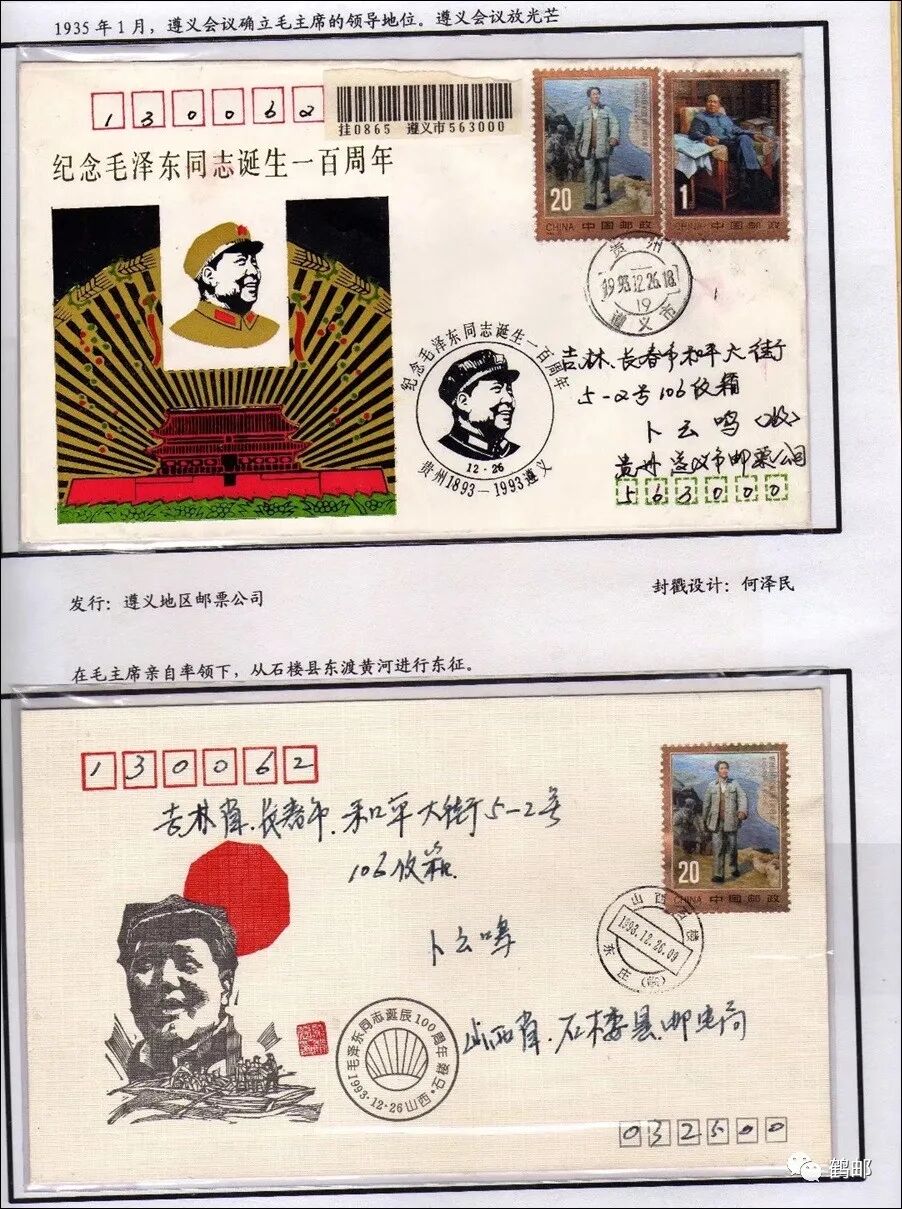 1935年1月，遵义会议确立毛主席的领导地位。遵义会议放光芒
130062
挂0865 遵义市563000
纪念毛泽东同志诞生一百周年
20
CHINA 中国邮政
1
CHINA 中国邮政
贵州
1993.12.26.18
19
遵义
纪念毛泽东同志诞生一百周年
12·26
贵州1893－1993遵义
吉林、长春市和平大街
5-2号106收箱
卜云鸣（收）
贵州遵义市邮票公司
563000
发行：遵义地区邮票公司
封戳设计：何泽民
在毛主席亲自率领下，从石楼县东渡黄河进行东征。
130062
吉林省、长春市、和平大街5-2号
106收箱
卜云鸣
20
CHINA 中国邮政
山西石楼
1993.12.26.09
东庄
毛泽东同志诞辰100周年
1993·12·26山西·石楼
山西省、石楼县邮电局
032500
鹤邮